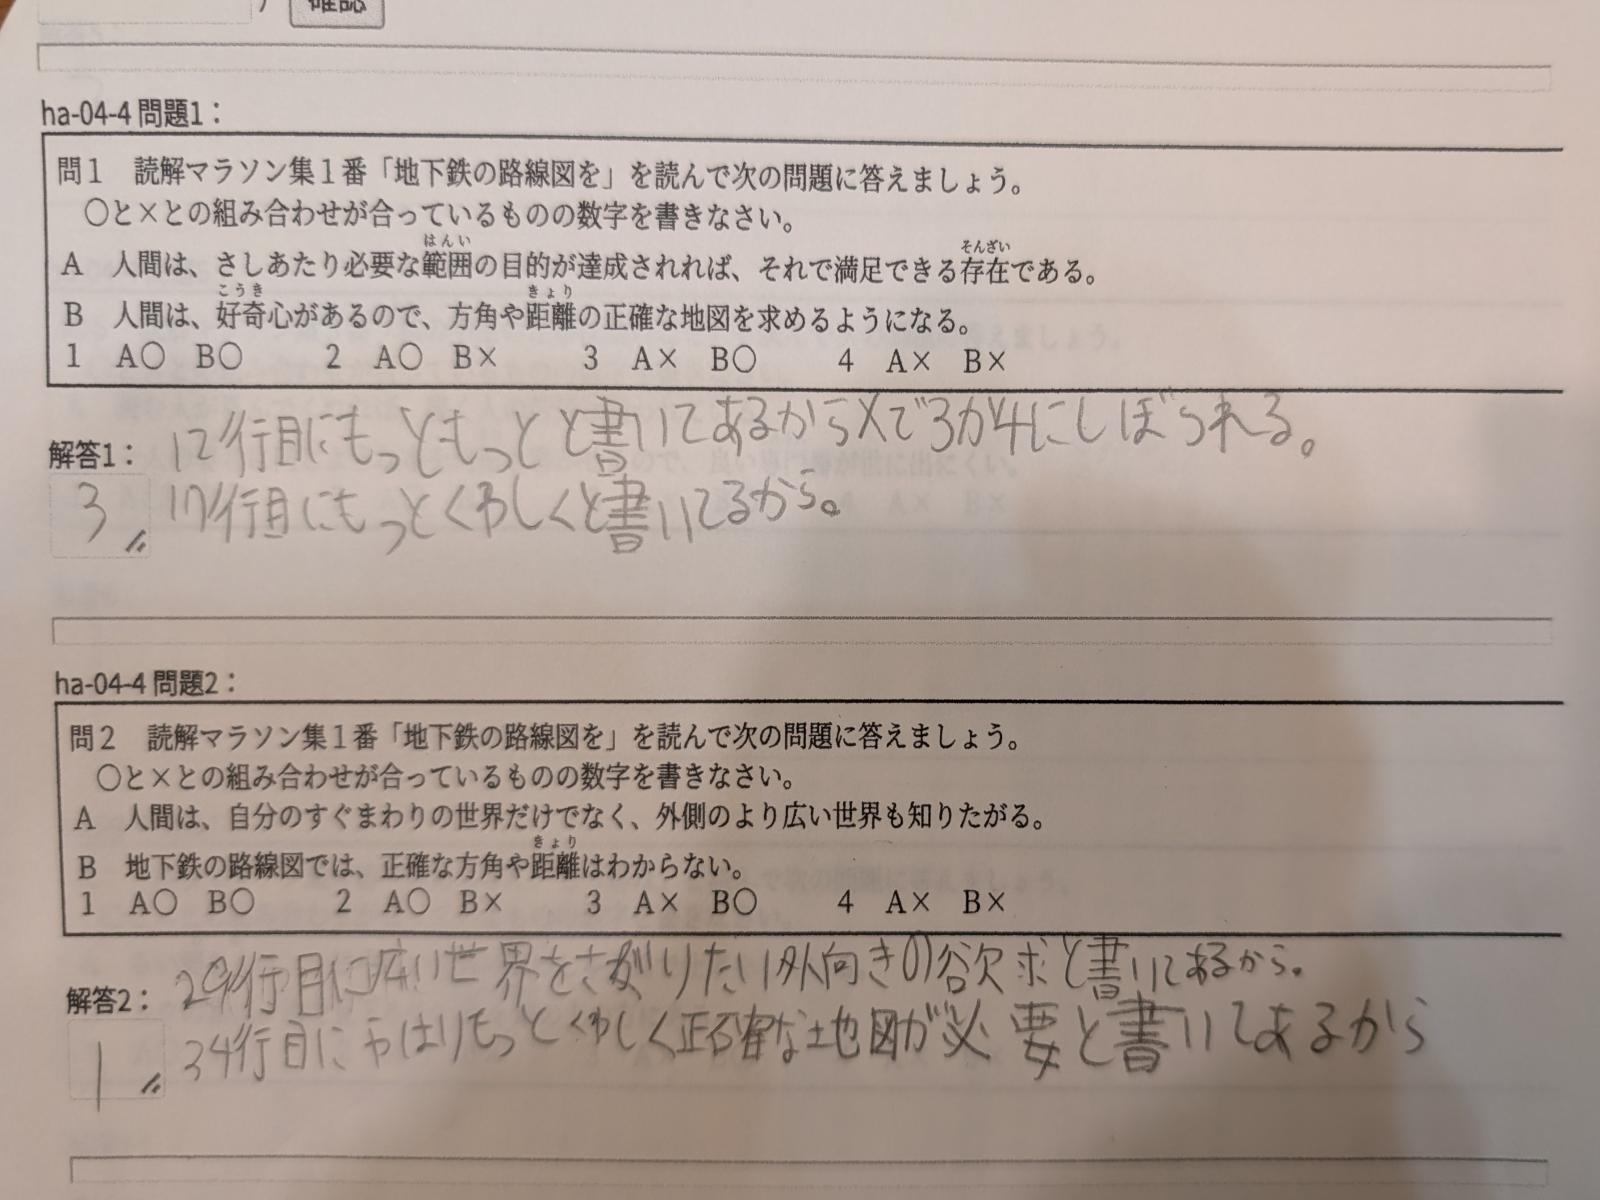 確認
ha-04-4 問題1：
問1　読解マラソン集1番「地下鉄の路線図を」を読んで次の問題に答えましょう。
○と×との組み合わせが合っているものの数字を書きなさい。
はんい　そんざい
A　人間は、さしあたり必要な範囲の目的が達成されれば、それで満足できる存在である。
こうき　きょり
B　人間は、好奇心があるので、方角や距離の正確な地図を求めるようになる。
1　A○　B○　　2　A○　B×　　3　A×　B○　　4　A×　B×
12行目にもっともっとと書いてあるから×で3か4にしぼられる。
解答1：
3
17行目にもっとくわしくと書いてるから。
ha-04-4 問題2：
問2　読解マラソン集1番「地下鉄の路線図を」を読んで次の問題に答えましょう。
○と×との組み合わせが合っているものの数字を書きなさい。
A　人間は、自分のすぐまわりの世界だけでなく、外側のより広い世界も知りたがる。
きょり
B　地下鉄の路線図では、正確な方角や距離はわからない。
1　A○　B○　　2　A○　B×　　3　A×　B○　　4　A×　B×
29行目に広い世界をさぐりたい外向きの欲求と書いてあるから。
解答2：
1
34行目にやはりもっとくわしく正確な地図が必要と書いてあるから